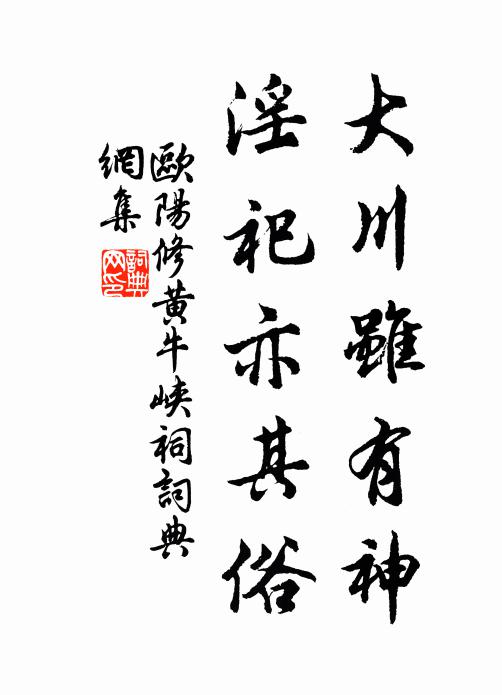 大川雖有神
淫祀亦其俗
歐陽修黃牛峽祠詞典
網集
詞典
网印